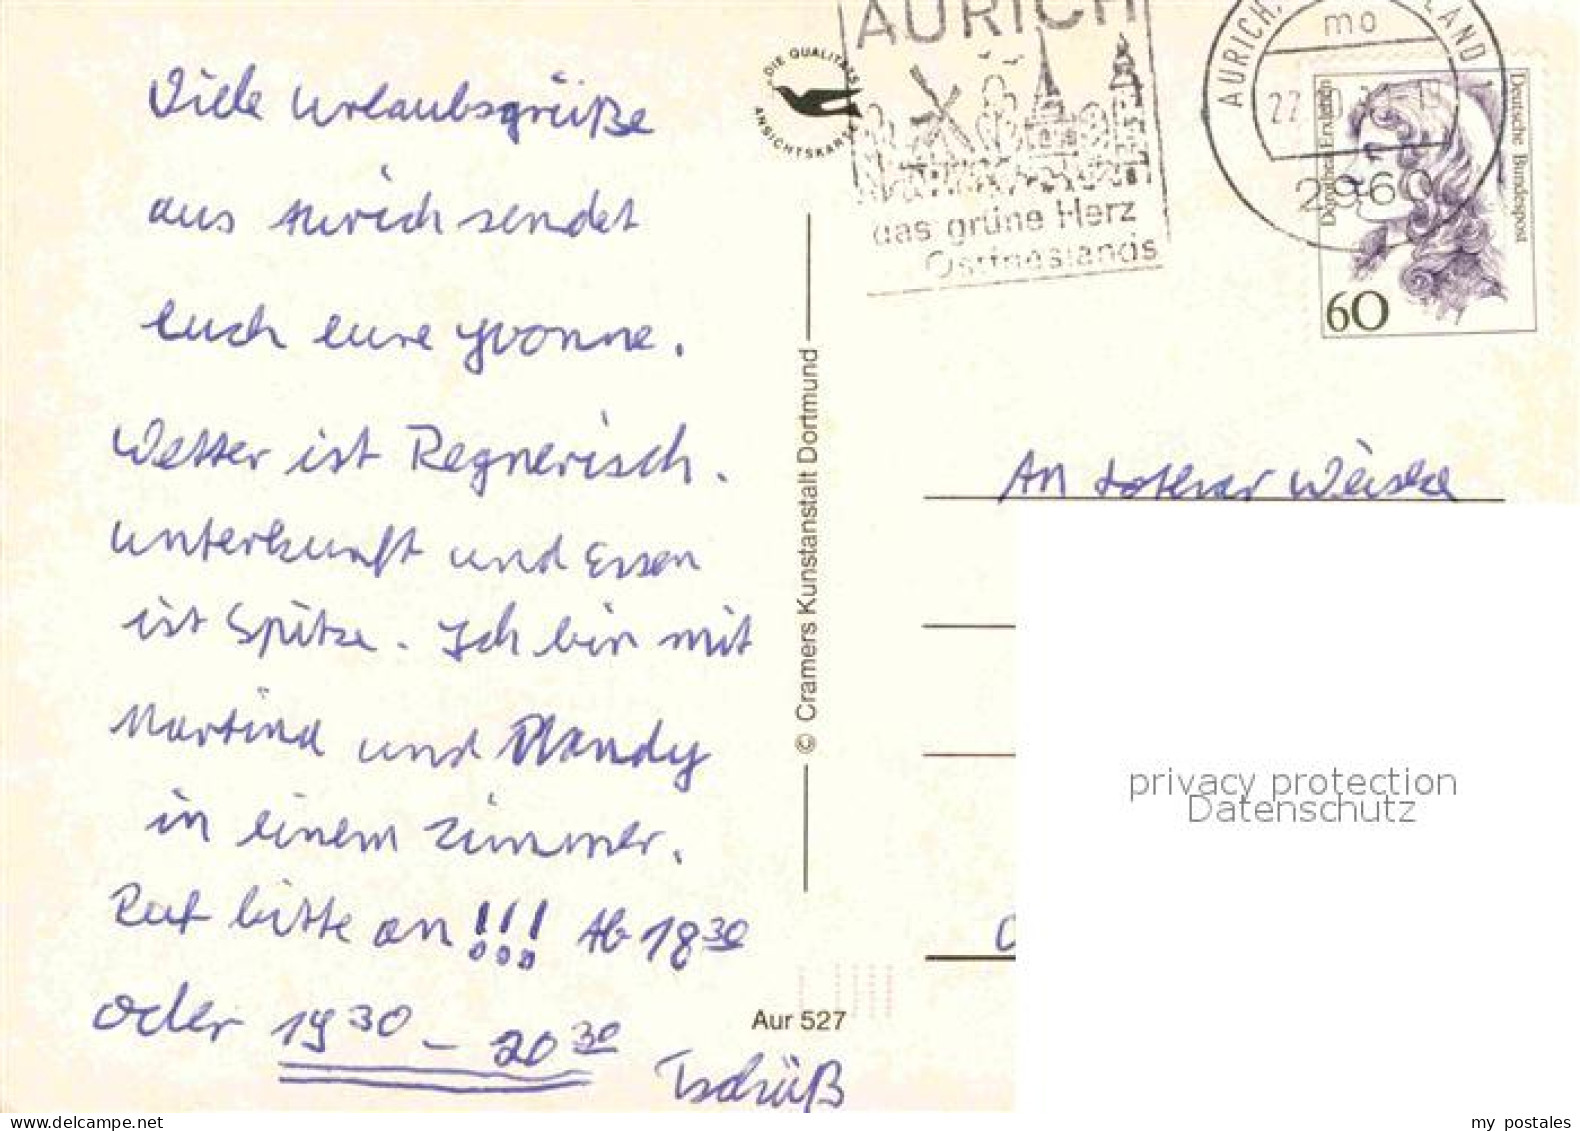 Viele Urlaubsgrüße
aus Aurich sendet
euch eure Yvonne.
Wetter ist Regnerisch.
Unterkunft und Essen
ist Spitze. Ich bin mit
Martina und Mandy
in einem Zimmer.
Ruf bitte an!!! Ab 18 30
oder 19 30 – 20 30
Tschüß
DIE QUALITÄTS
ANSICHTSKARTE
AURICH
das grüne Herz
Ostfrieslands
AURICH,
mo
2960
Dorothea Erxleben
Deutsche Bundespost
60
© Cramers Kunstanstalt Dortmund
Aur 527
An Lothar
privacy protection
Datenschutz
my postales